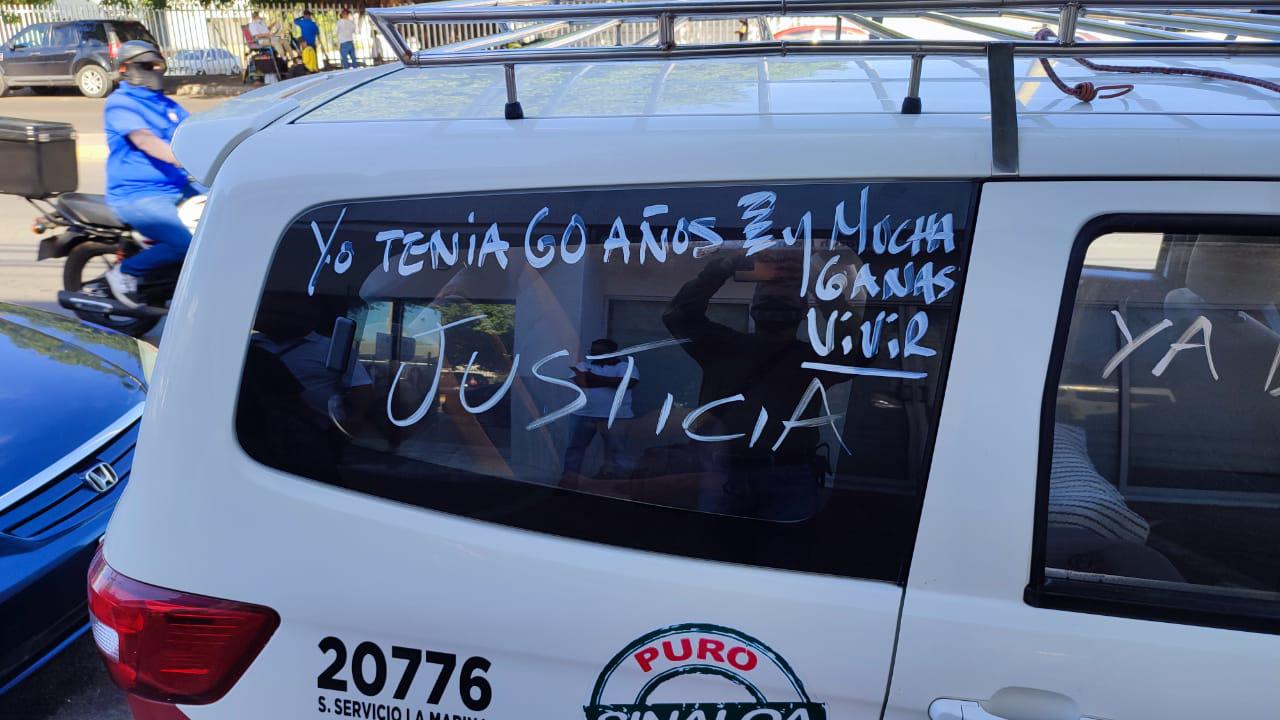 Yo TENIA 60 AÑOS y MUCHA
GANAS
ViViR
JUSTICIA
YA
20776
S. SERVICIO LA MARINA
PURO
SINALOA